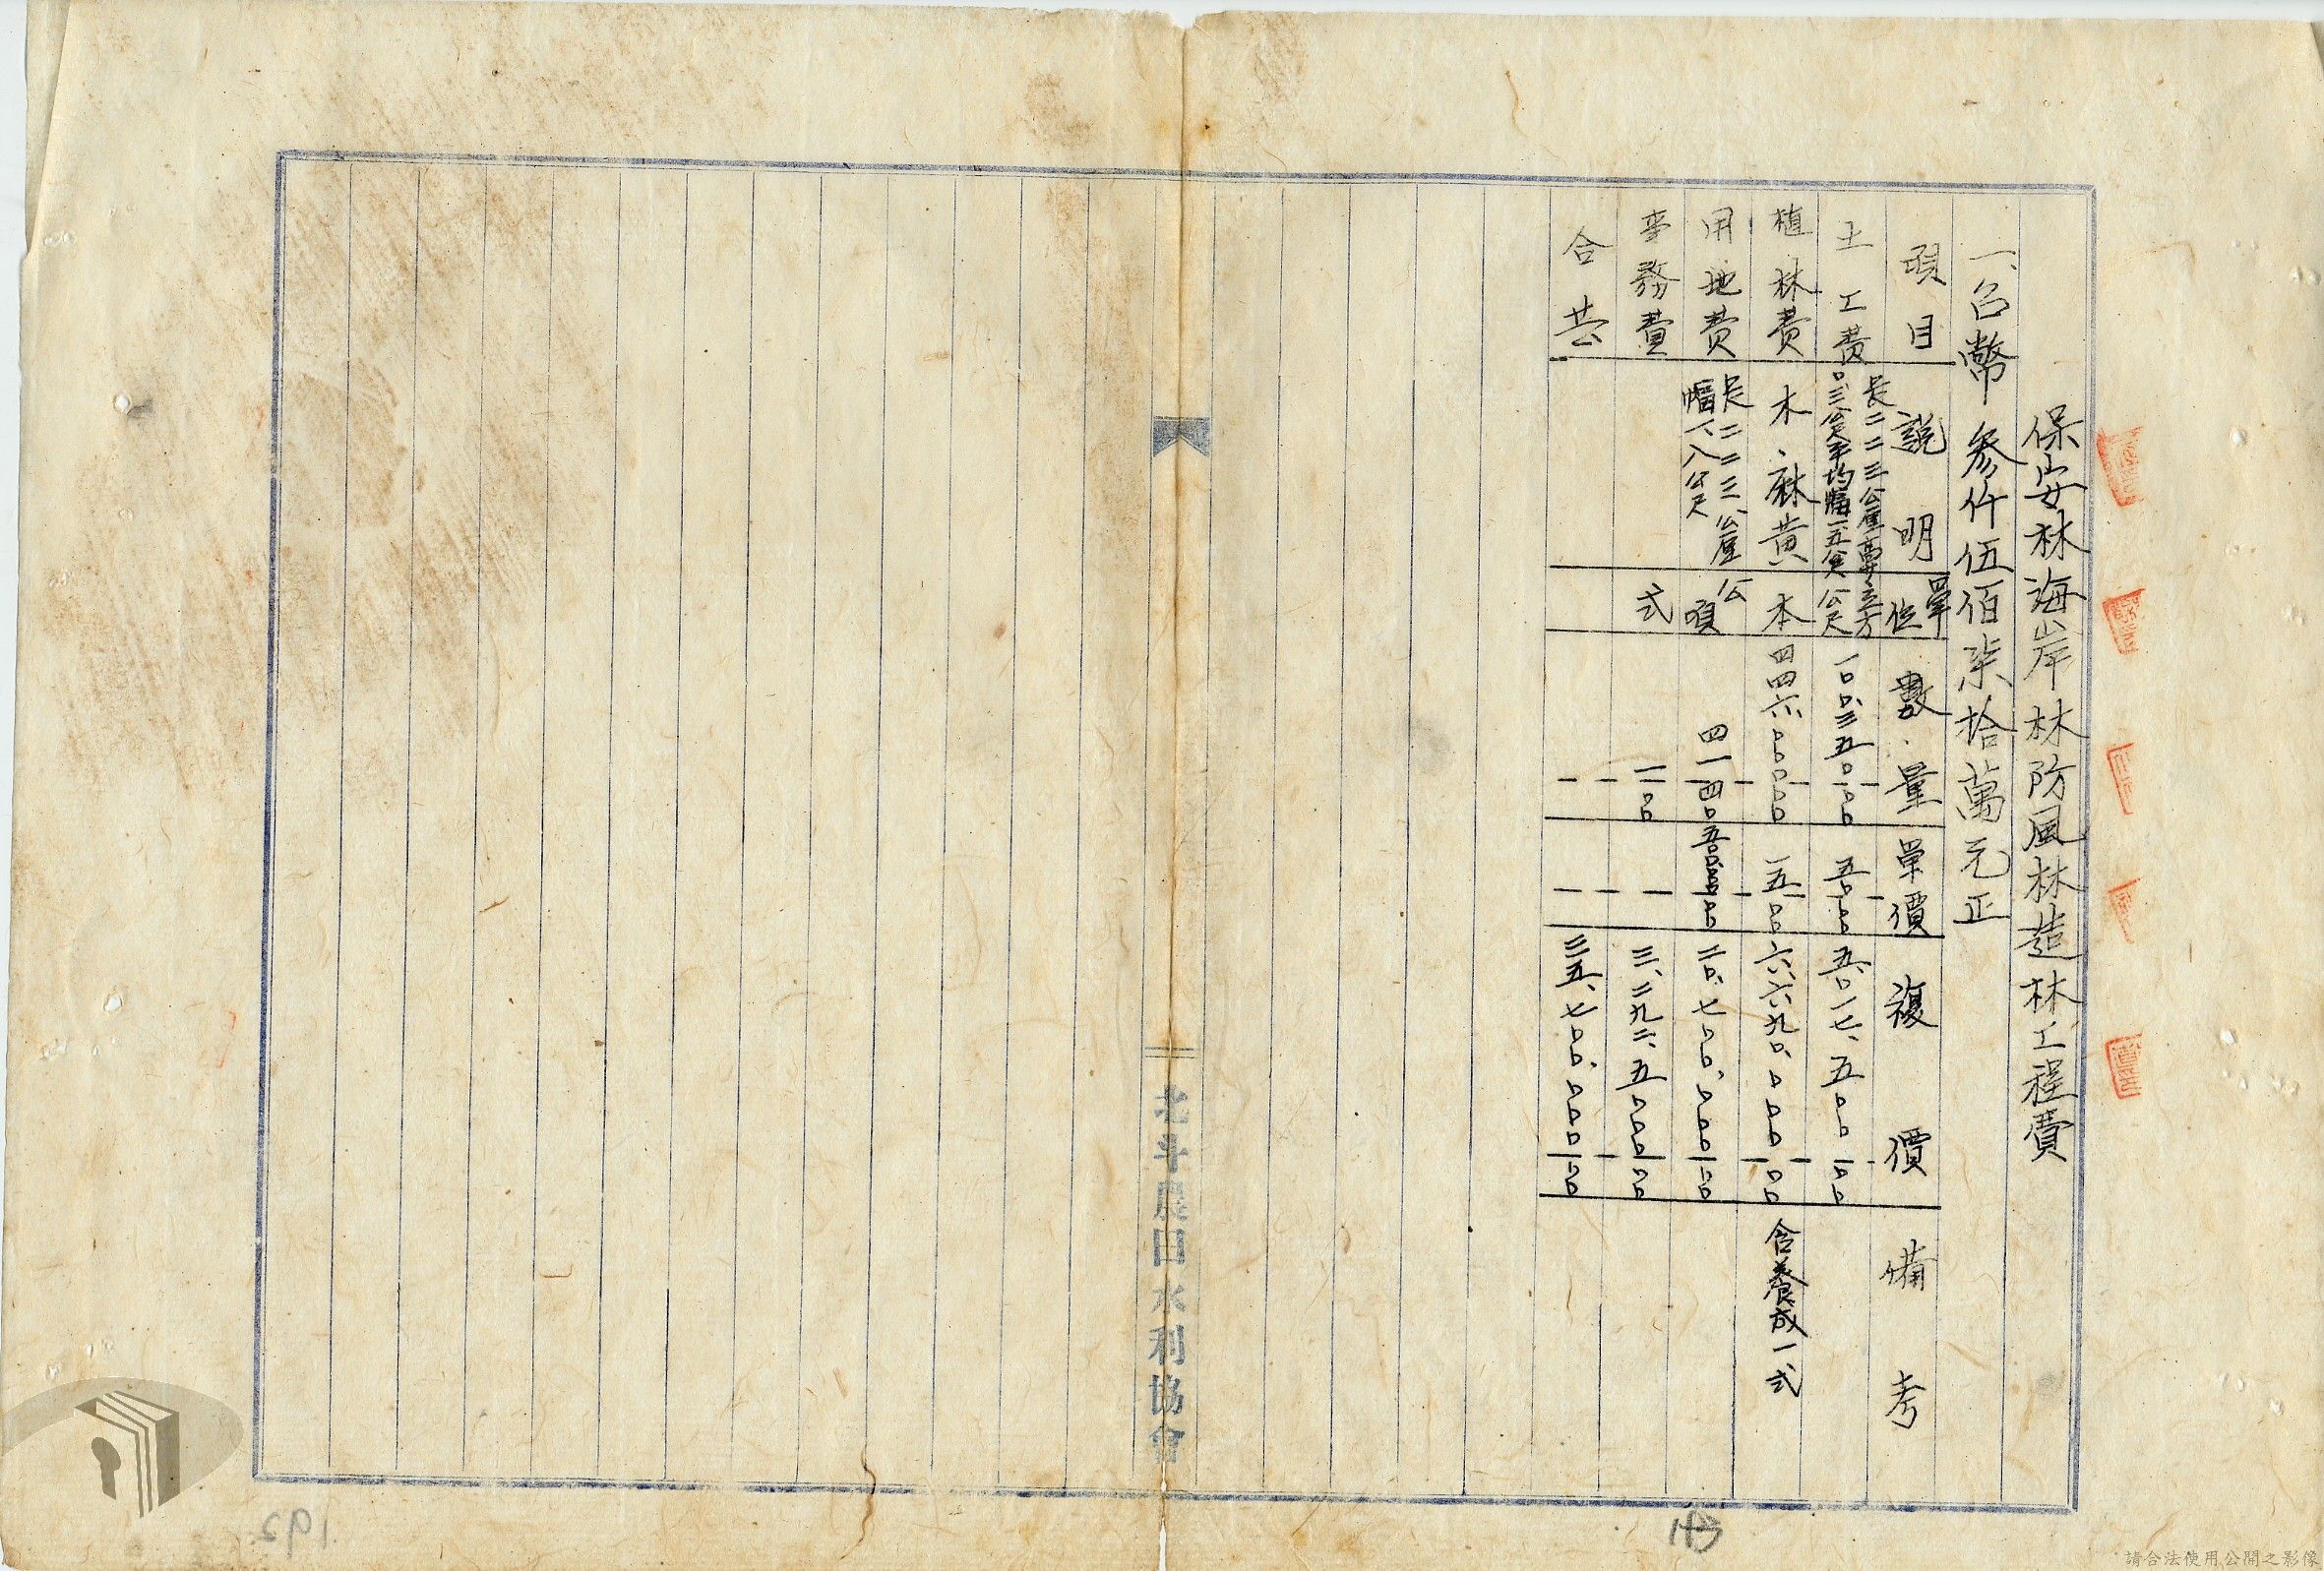 保安林海岸林防風林造林工程費
一、台幣參仟伍佰柒拾萬元正
項目 說明 單位 數量 單價 複價 備考
土工費 長二二三公厘高〇.三公尺平均幅一.五公尺 立方公尺 一〇〇、三五〇〇〇 五〇〇〇 五、〇一七、五〇〇〇〇
植林費 木、麻黄 本 四四六、〇〇〇〇〇 一五〇〇 六、六九〇、〇〇〇〇〇 含養成一式
用地費 長二二三公厘幅一八公尺 公頃 四一四〇〇 五〇、〇〇〇〇〇 二〇、七〇〇、〇〇〇〇〇
事務費 式 一〇〇 三、二九二、五〇〇〇〇
合共 三五、七〇〇、〇〇〇〇〇
北斗農田水利協會
請合法使用公開之影像